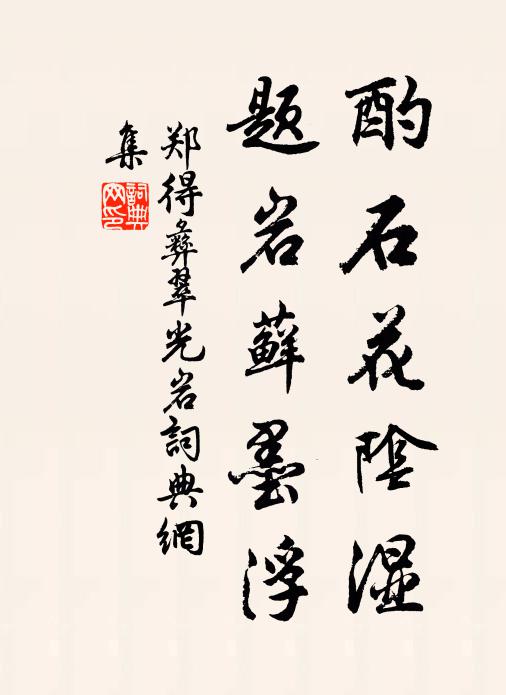 酌石花陰濕
題岩蘚墨浮
郑得彝翠光岩詞典網
集
詞典網印